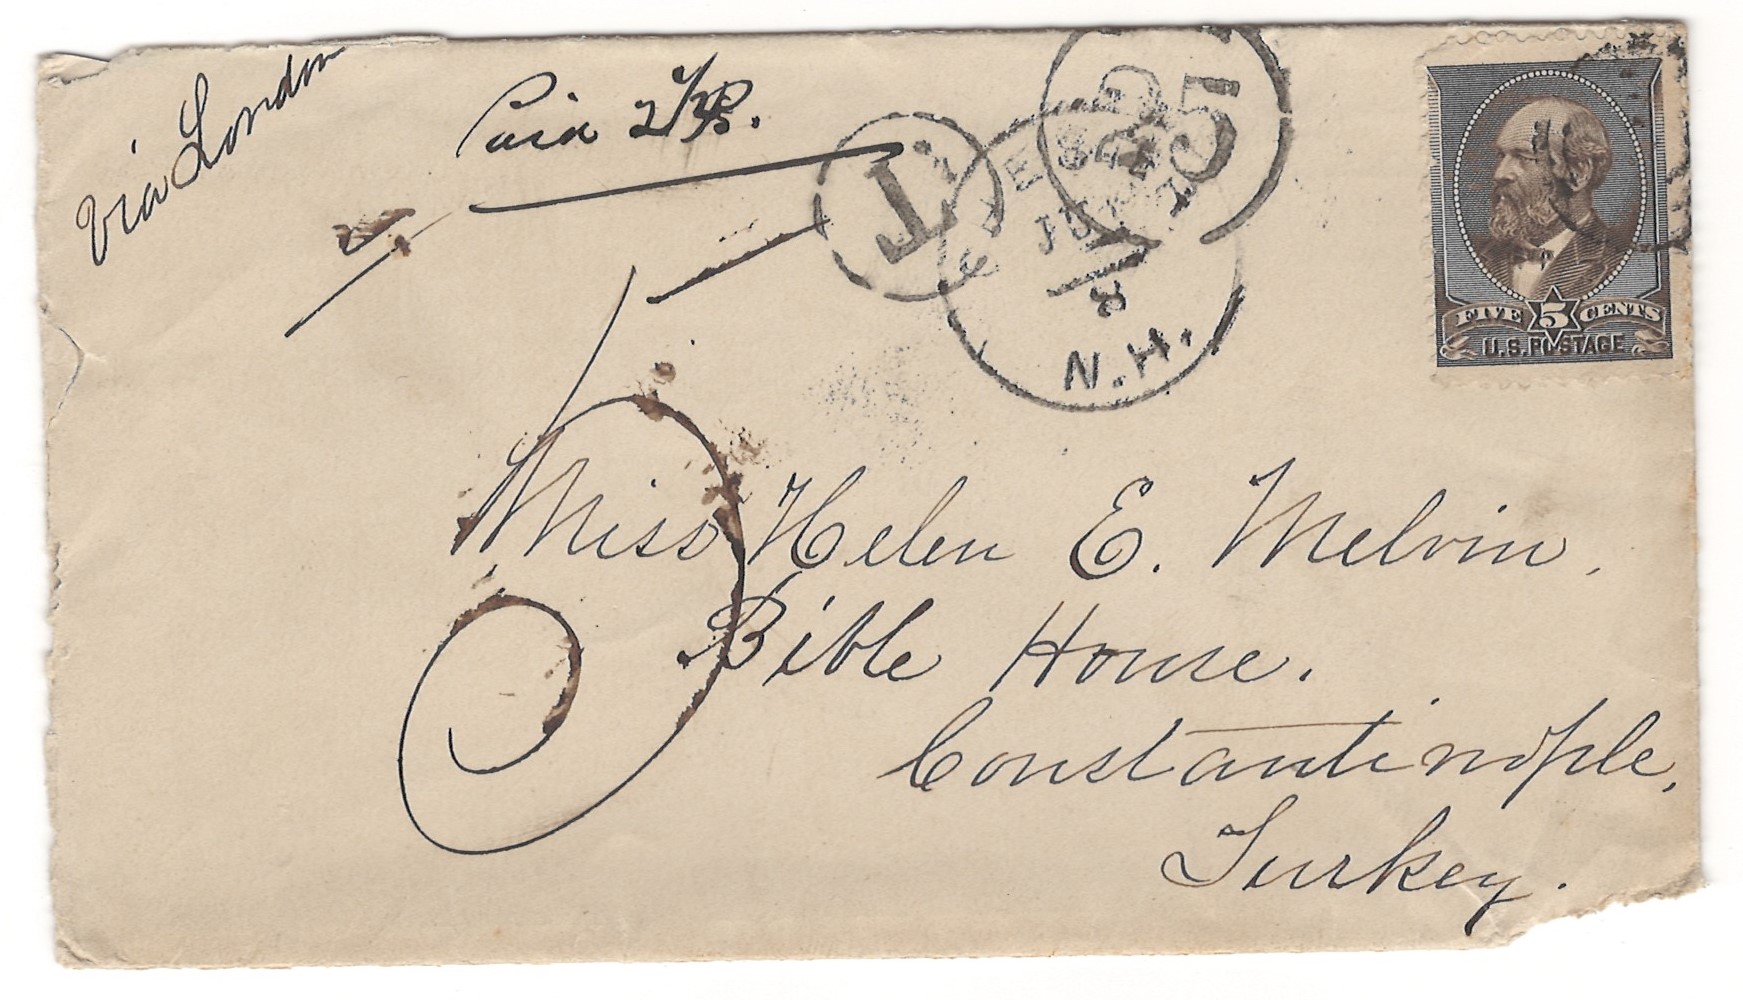 Via London
Paid
T
25
JUN
N.H.
FIVE 5 CENTS
U.S. POSTAGE
5
Miss Helen E. Melvin,
Bible House.
Constantinople,
Turkey.